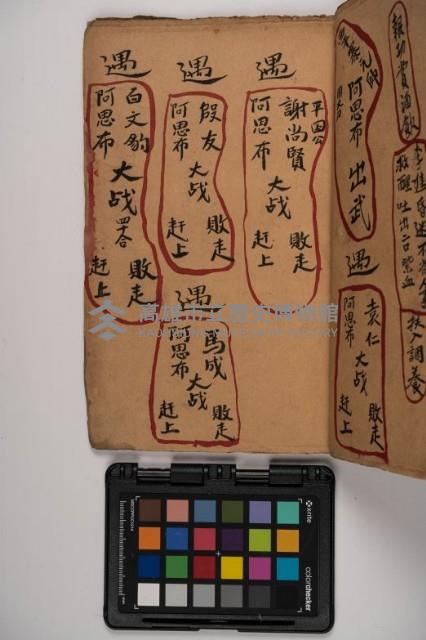 報功賞酒飲
救醒吐出二口紫血
扶入調養
阿思布
出武
遇
袁仁
阿思布
大战
敗走
赶上
遇
平国公
謝尚賢
阿思布
大战
敗走
赶上
遇
段友
阿思布
大战
敗走
赶上
遇
馬成
阿思布
大战
敗走
赶上
遇
白文豹
阿思布
大战
四合
敗走
赶上
高雄市立歷史博物館
KAOHSIUNG MUSEUM OF HISTORY
x-rite
colorchecker